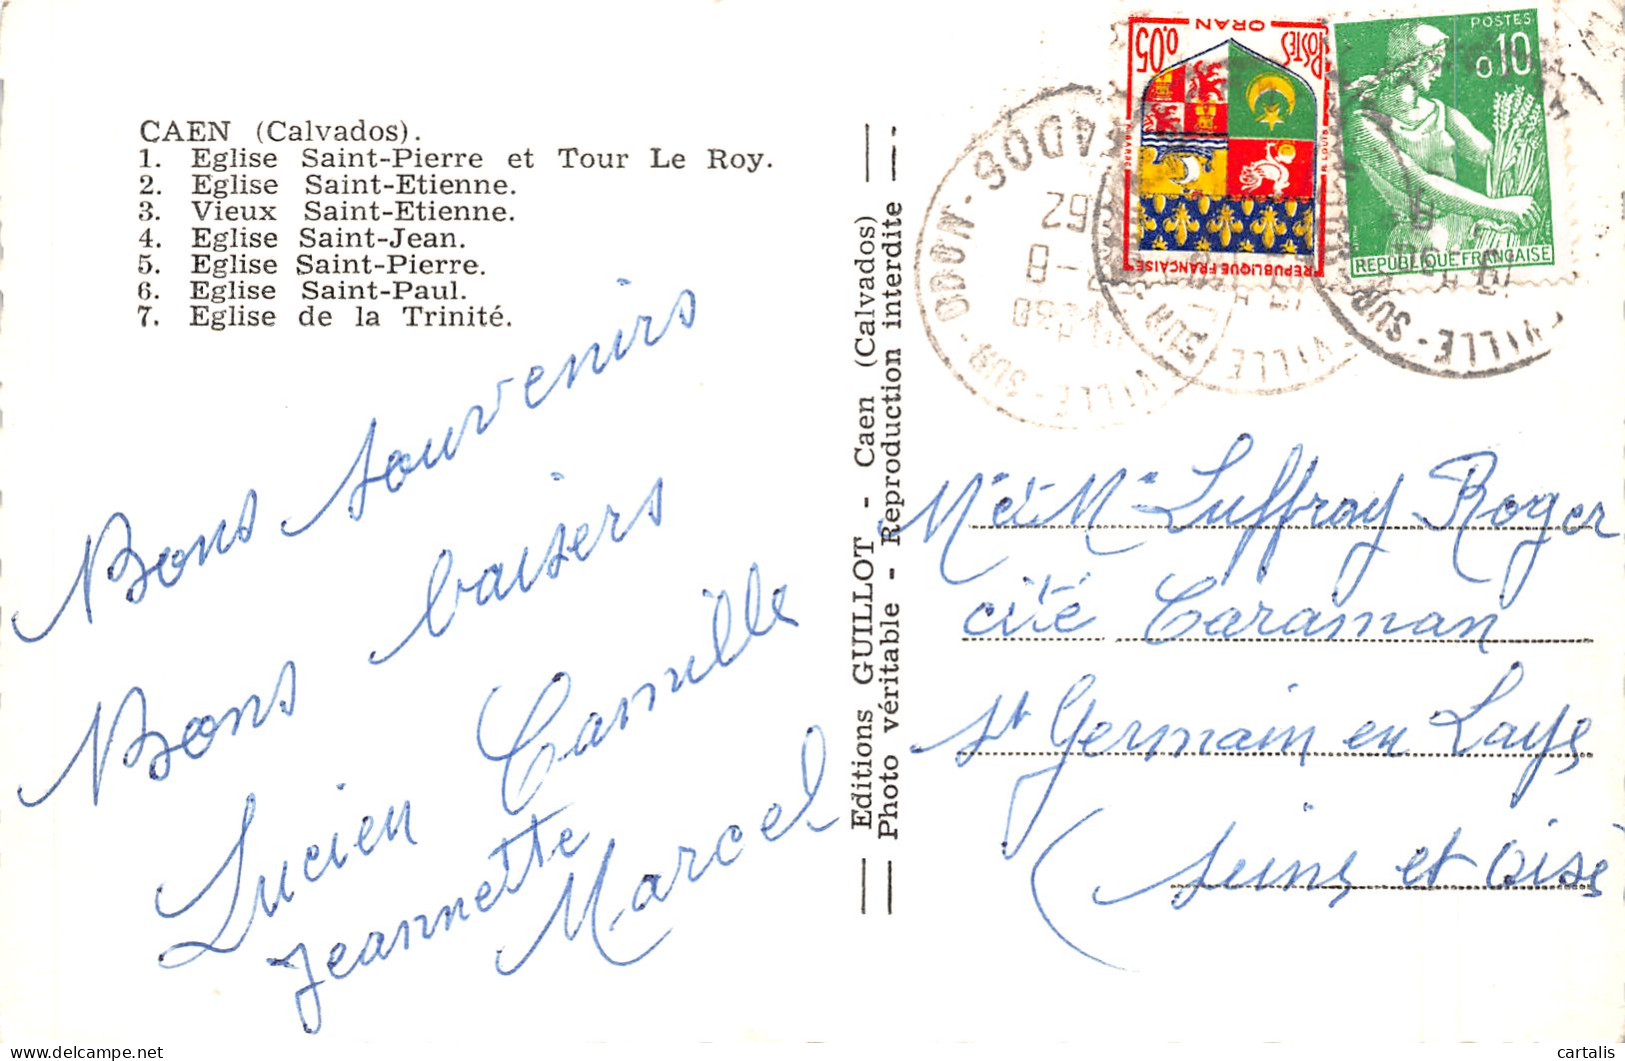 CAEN (Calvados).
1. Eglise Saint-Pierre et Tour Le Roy.
2. Eglise Saint-Etienne.
3. Vieux Saint-Etienne.
4. Eglise Saint-Jean.
5. Eglise Saint-Pierre.
6. Eglise Saint-Paul.
7. Eglise de la Trinité.
Bons souvenirs
Bons baisers
Lucien Camille
Jeannette
Marcel
Editions GUILLOT - Caen (Calvados)
Photo véritable - Reproduction interdite
ORAN
POSTES
0.05
REPUBLIQUE FRANÇAISE
POSTES
0,10
REPUBLIQUE FRANÇAISE
VILLE-SUR-ODON
62
VILLE-SUR
VILLE-SUR
Mr et Me Luffroy Roger
cité Caraman
St Germain en Laye
(Seine et Oise)
cartalis